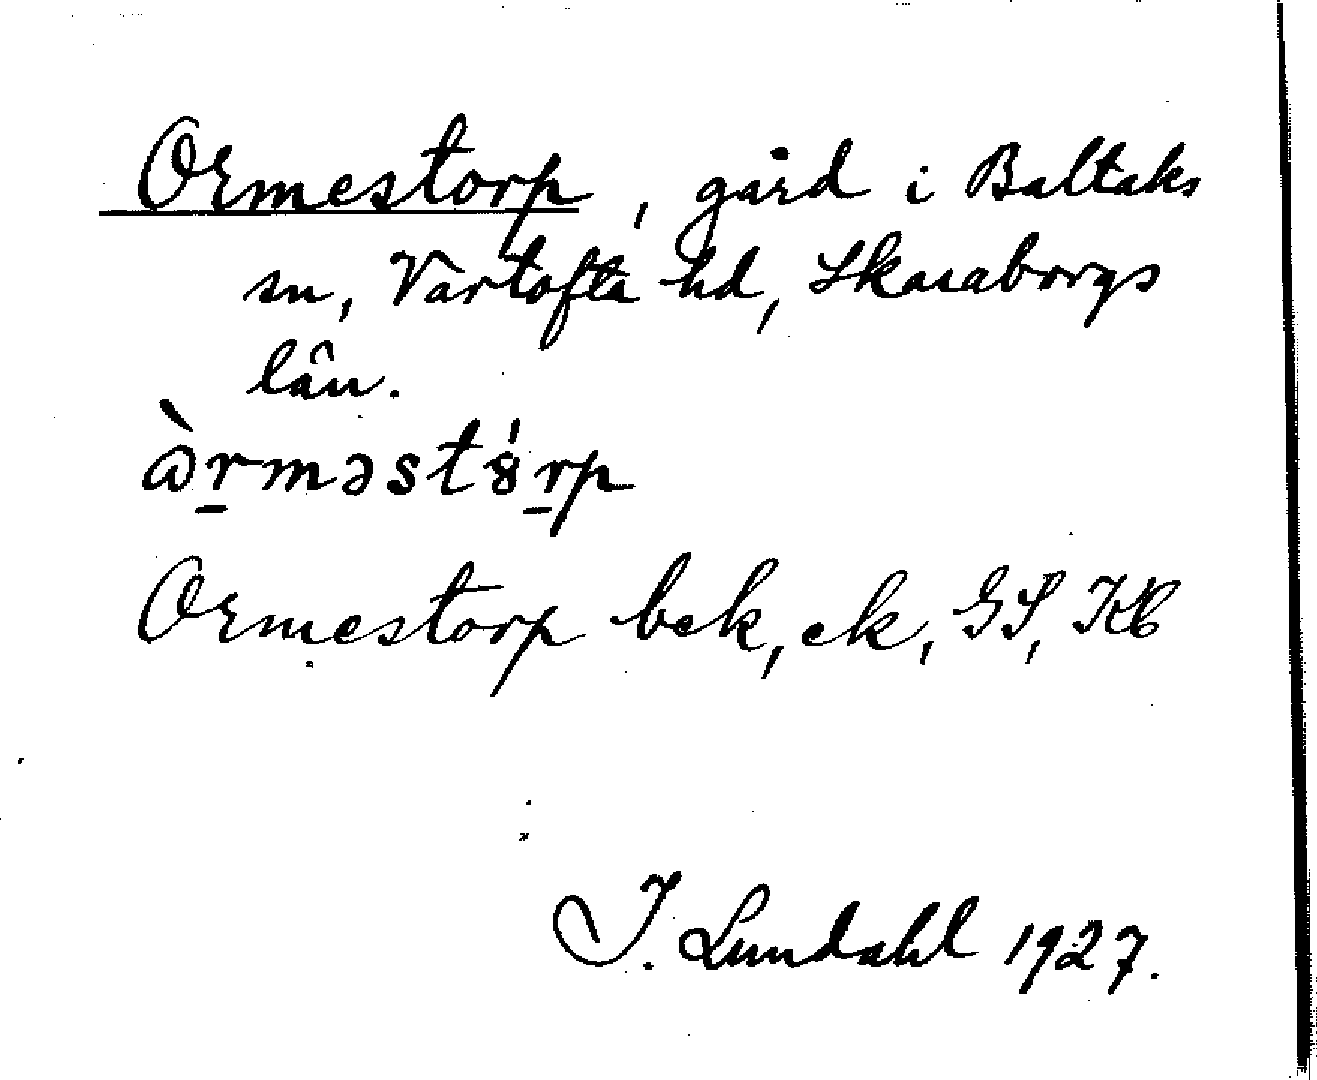 Ormestorp, gård i Baltaks
sn, Vartofta hd, Skaraborgs
län.
ꞷ̀r̠məstȣ́r̠p
Ormestorp bek, ek, GS, KB
I. Lundahl 1927.